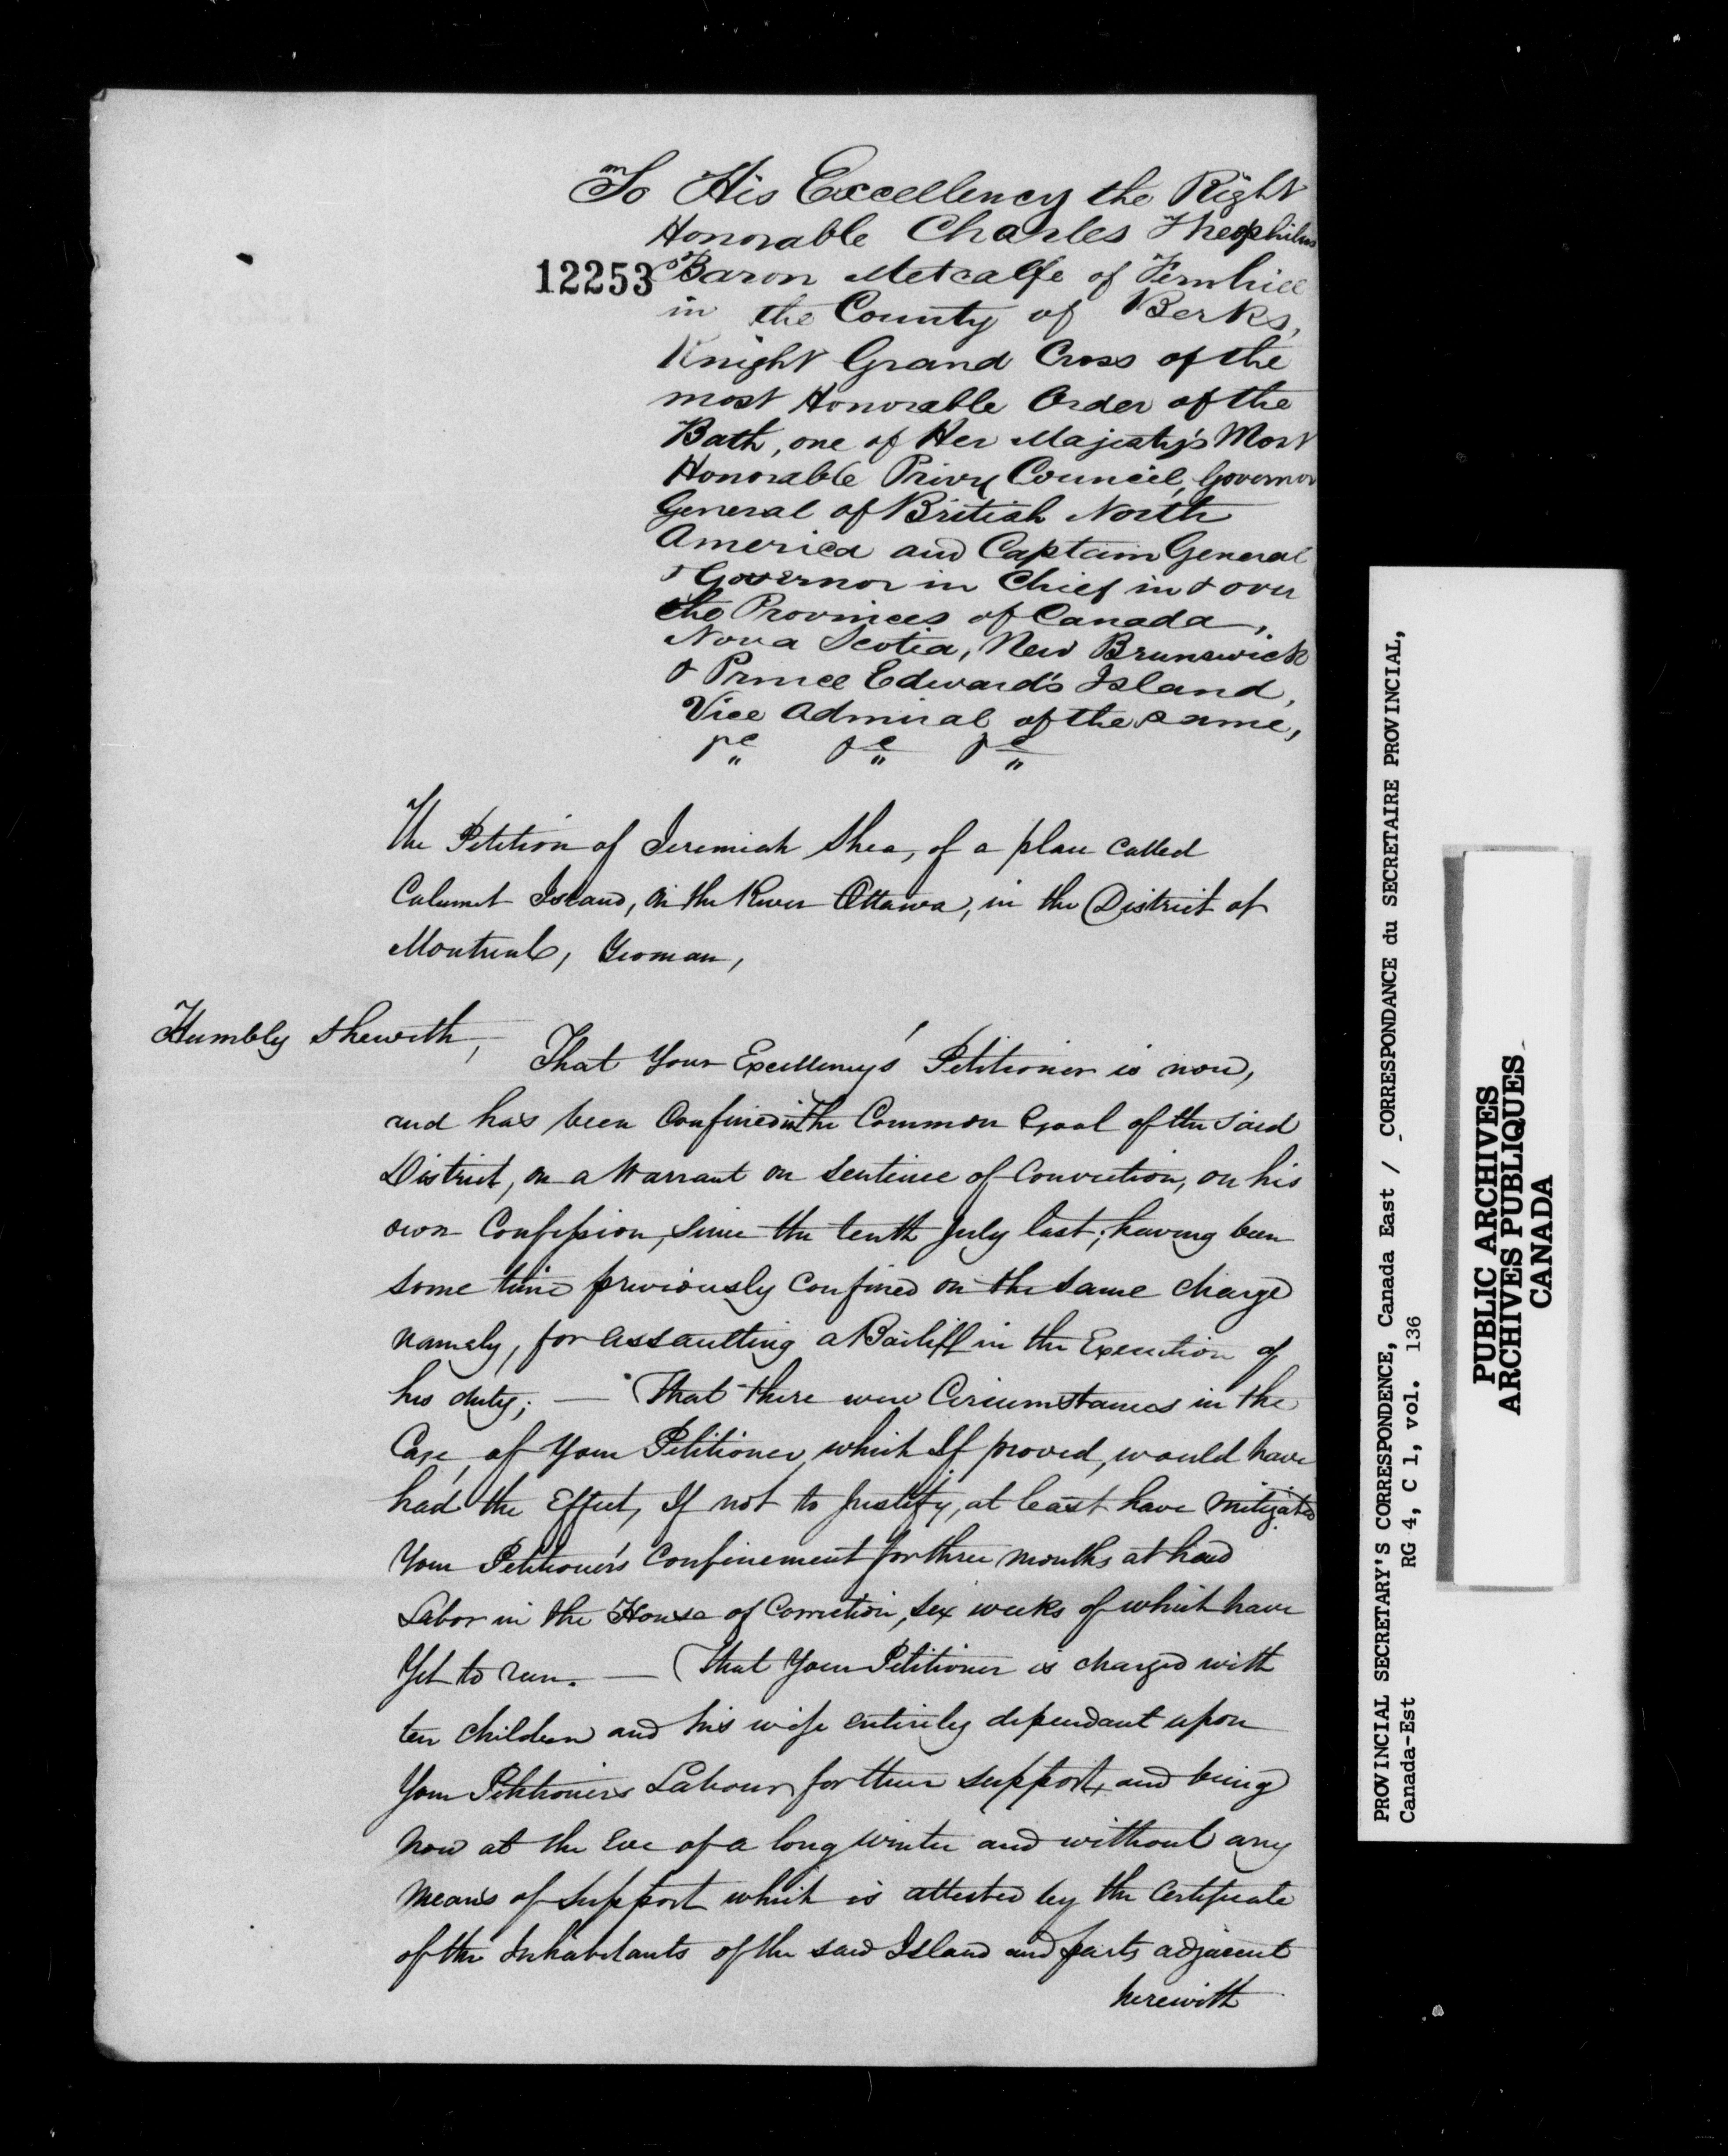 To His Excellency the Right
Honorable Charles Theophilus
12253
Baron Metcalfe of Fernhill
in the County of Berks,
Knight Grand Cross of the
most Honorable Order of the
Bath, one of Her Majesty's Most
Honorable Privy Council, Governor
General of British North
America and Captain General
& Governor in Chief in & over
the Provinces of Canada,
Nova Scotia, New Brunswick
& Prince Edward's Island,
Vice Admiral of the same,
&c &c &c
The Petition of Jeremiah Shea, of a place called
Calumet Island, on the River Ottawa, in the District of
Montreal, Yeoman,
Humbly Sheweth,
That Your Excellency's Petitioner is now,
and has been Confined in the Common Gaol of the said
District, on a Warrant on Sentence of Conviction, on his
own Confession, since the tenth July last; having been
some time previously confined on the same charge
namely, for assaulting a Bailiff in the Execution of
his duty; — That there were Circumstances in the
Case, of Your Petitioner, which If proved, would have
had the Effect, If not to Justify, at least have mitigated
Your Petitioner's Confinement for three months at hard
Labor in the House of Correction, six weeks of which have
Yet to run. — That Your Petitioner is charged with
ten children and his wife entirely dependant upon
Your Petitioners Labour for their support, and being
now at the Eve of a long winter and without any
means of support which is attested by the Certificate
of the Inhabitants of the said Island and parts adjacent
herewith
PROVINCIAL SECRETARY'S CORRESPONDENCE, Canada East / CORRESPONDANCE du SECRETAIRE PROVINCIAL,
Canada-Est RG 4, C 1, vol. 136
PUBLIC ARCHIVES
ARCHIVES PUBLIQUES
CANADA